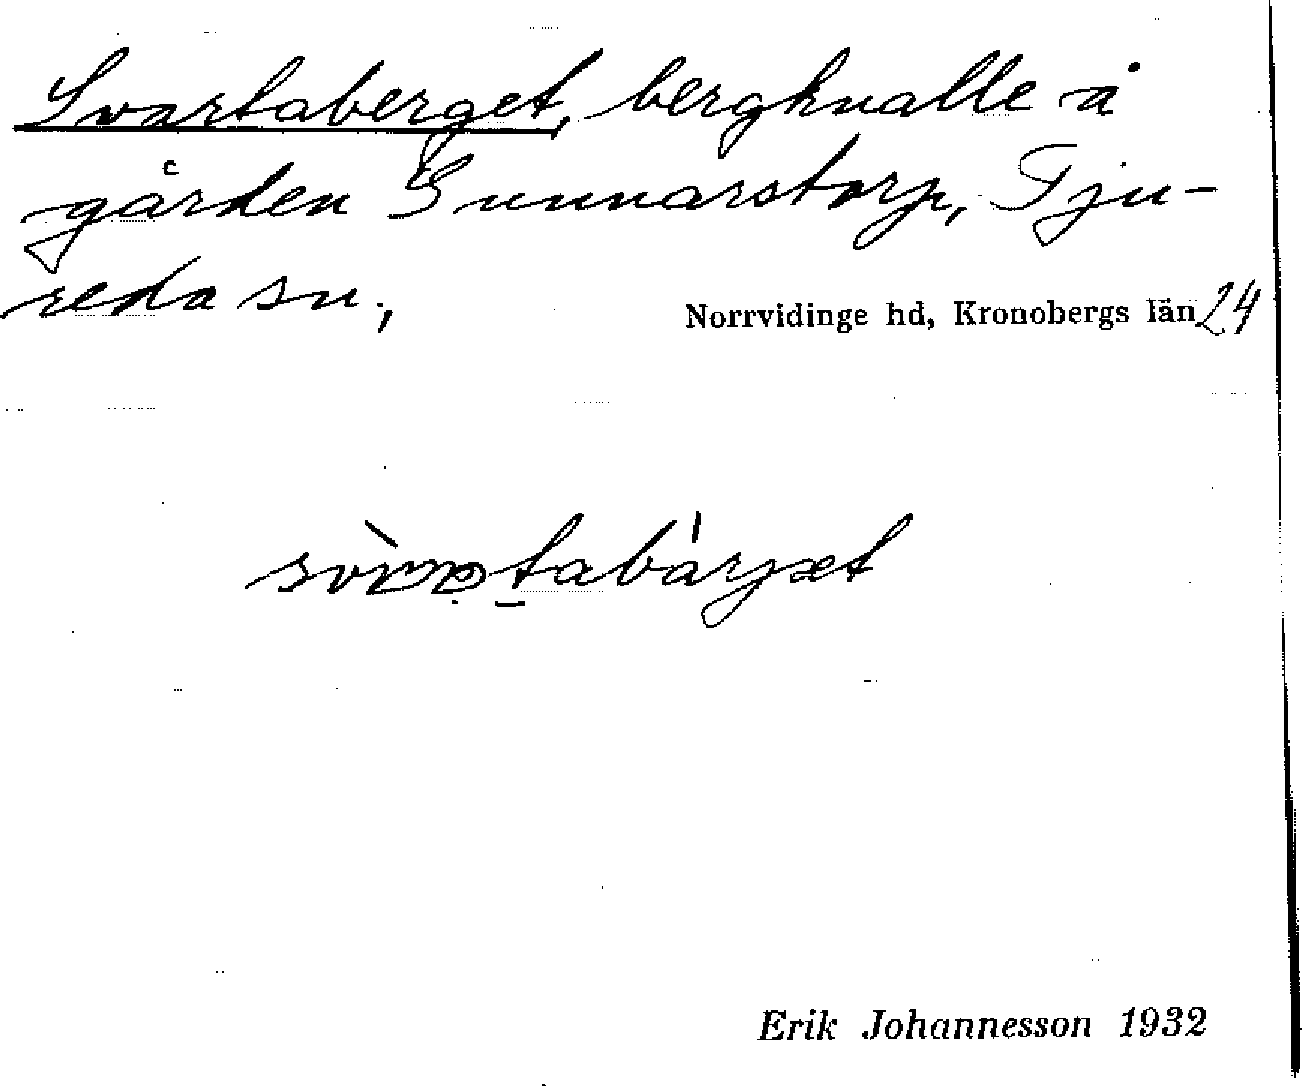 Svartaberget, bergknalle å
gården Gunnarstorp, Tju-
reda sn,
Norrvidinge hd, Kronobergs län 24
Erik Johannesson 1932